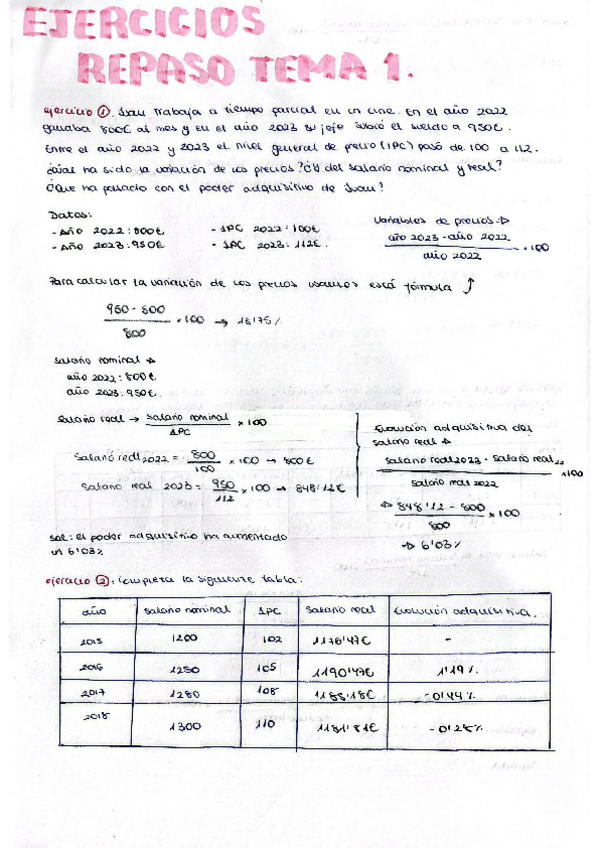 EJERCICIOS
REPASO TEMA 1.
ejercicio ①. Juan trabaja a tiempo parcial en un cine. En el año 2022
ganaba 800€ al mes y en el año 2023 su jefe subió el sueldo a 950€.
Entre el año 2022 y 2023 el nivel general de precio (IPC) pasó de 100 a 112.
¿Cuál ha sido la variación de los precios? ¿Y del salario nominal y real?
¿Qué ha pasado con el poder adquisitivo de Juan?
Datos:
- Año 2022: 800€
- Año 2023: 950€
- IPC 2022: 100€
- IPC 2023: 112€.
Variables de precios →
año 2023 - año 2022
año 2022
· 100
Para calcular la variación de los precios usamos está fórmula
950 - 800
800
· 100 → 18'75%
Salario nominal →
año 2022: 800€
año 2023: 950€.
Salario real → salario nominal
IPC
× 100
Salario real 2022 = 800
100
× 100 → 800€
Salario real 2023 = 950
112
× 100 → 848'12€
Sol: El poder adquisitivo ha aumentado
un 6'03%
Evolución adquisitiva del
salario real →
salario real 2023 - salario real 22
salario real 2022
×100
→ 848'12 - 800
800
× 100
→ 6'03%
ejercicio ②. Completa la siguiente tabla:
año salario nominal IPC salario real Evolución adquisitiva.
2015 1200 102 1176'47€ -
2016 1250 105 1190'47€ 1'19%
2017 1280 108 1185'18€ -0'44%
2018 1300 110 1181'81€ -0'28%